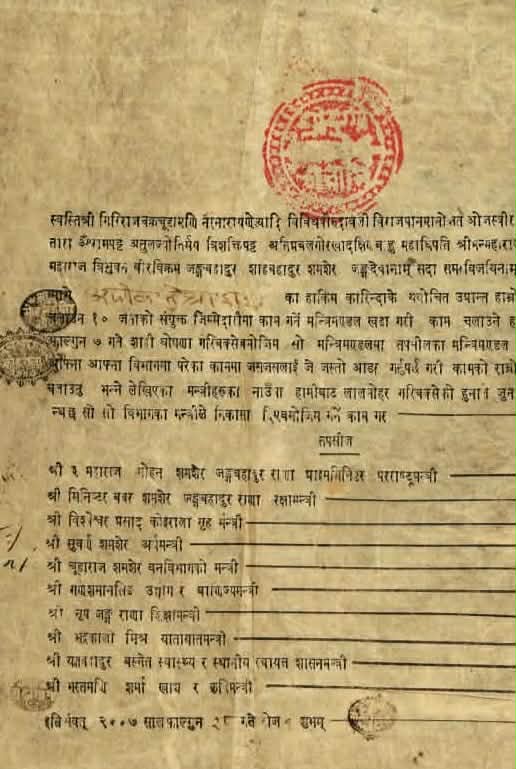 स्वस्तिश्री गिरिराजचक्रचूडामणि नरनारायणेत्यादि विविधविरुदावली विराजमानमानोन्नत ओजस्वीर
तारा अतुलज्योतिर्मय त्रिशक्तिपट्ट अतिप्रबलगोरखादक्षिणबाहु महाधिपति श्रीमन्महारा
महाराज त्रिभुवन वीरविक्रम जङ्गबहादुर शाहबहादुर शमशेर जङ्गदेवानाम् सदा समरविजयिनाम्
का हाकिम कारिन्दाके यथोचित उपान्त हाम्रो
१० जनाको संयुक्त जिम्मेदारीमा काम गर्ने मन्त्रिमण्डल खडा गरी काम चलाउने
फाल्गुन ७ गते शाही घोषणा गरिबक्सेबमोजिम सो मन्त्रिमण्डलमा तपसीलका मन्त्रिमण्डल
आफ्ना विभागमा परेका काममा जसजसलाई जे जस्तो अर्डर गर्नुपर्छ गरी कामको
भन्ने लेखिएका मन्त्रीहरूका नाउँमा हामीबाट लालमोहर गरिबक्सेको हुनाले जुन
सो सो विभागका मन्त्रीले निकासा दिएबमोजिम गर्ने काम गर
तपसील
श्री ३ महाराज मोहन शमशेर जङ्गबहादुर राणा प्राइममिनिस्टर परराष्ट्रमन्त्री
श्री मिनिस्टर बबर शमशेर जङ्गबहादुर राणा रक्षामन्त्री
श्री विश्वेश्वर प्रसाद कोइराला गृह मन्त्री
श्री सुवर्ण शमशेर अर्थमन्त्री
श्री चूडाराज शमशेर वनविभागको मन्त्री
श्री गणेशमानसिंह उद्योग र वाणिज्यमन्त्री
श्री नृप जङ्ग राणा शिक्षामन्त्री
श्री भद्रकाली मिश्र यातायातमन्त्री
श्री यज्ञबहादुर बस्नेत स्वास्थ्य र स्थानीय स्वायत्त शासनमन्त्री
श्री भरतमणि शर्मा खाद्य र कृषिमन्त्री
इति संवत् २००७ साल फाल्गुन २८ गते रोज शुभम्